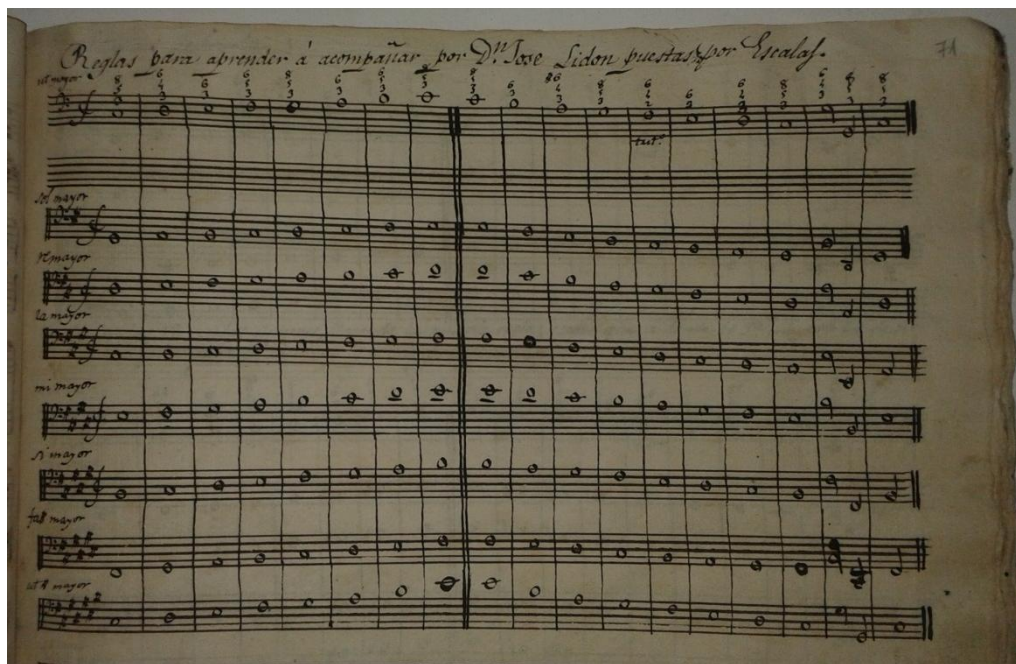 Reglas para aprender á acompañar por Dn. Jose Lidon puestas por Escalas.
71
ut mayor
sol mayor
re mayor
la mayor
mi mayor
si mayor
fa# mayor
ut # mayor